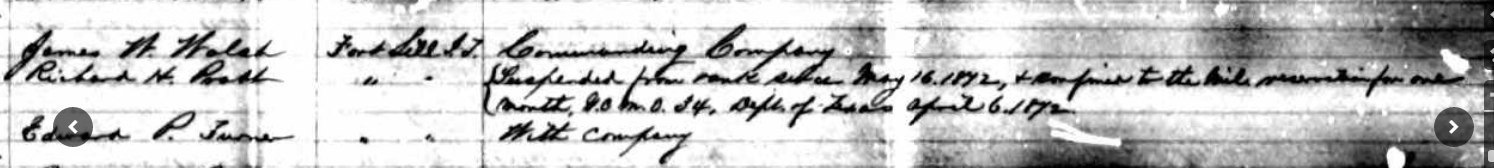 James W. Walsh Fort Sill I.T. Commanding Company
Richard H. Pratt " " Suspended from rank since May 16. 1872, & confined to the Mil. reservation for one
month, G.C.M.O. 24, Dept. of Texas April 6. 1872
Edward P. Turner " " With company